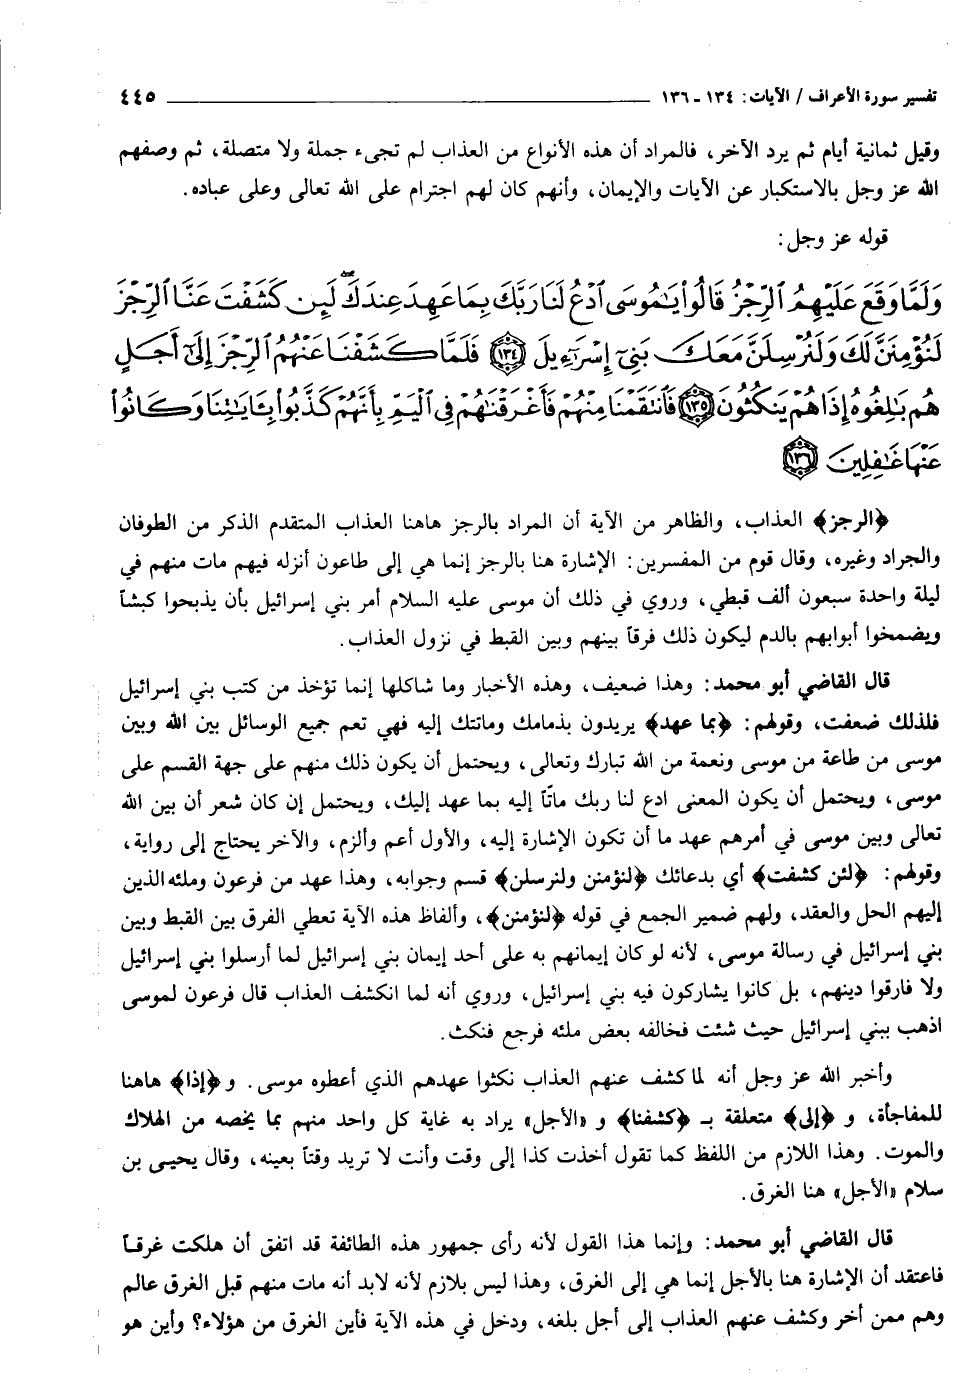 تفسير سورة الأعراف / الآيات: ١٣٤ - ١٣٦ ــــــــــ ٤٤٥
وقيل ثمانية أيام ثم يرد الآخر، فالمراد أن هذه الأنواع من العذاب لم تجيء جملة ولا متصلة، ثم وصفهم
الله عز وجل بالاستكبار عن الآيات والإيمان، وأنهم كان لهم اجترام على الله تعالى وعلى عباده.
قوله عز وجل:
وَلَمَّا وَقَعَ عَلَيْهِمُ ٱلرِّجْزُ قَالُوا۟ يَٰمُوسَى ٱدْعُ لَنَا رَبَّكَ بِمَا عَهِدَ عِندَكَ لَئِن كَشَفْتَ عَنَّا ٱلرِّجْزَ
لَنُؤْمِنَنَّ لَكَ وَلَنُرْسِلَنَّ مَعَكَ بَنِىٓ إِسْرَٰٓءِيلَ ﴿١٣٤﴾ فَلَمَّا كَشَفْنَا عَنْهُمُ ٱلرِّجْزَ إِلَىٰٓ أَجَلٍ
هُم بَٰلِغُوهُ إِذَا هُمْ يَنكُثُونَ ﴿١٣٥﴾ فَٱنتَقَمْنَا مِنْهُمْ فَأَغْرَقْنَٰهُمْ فِى ٱلْيَمِّ بِأَنَّهُمْ كَذَّبُوا۟ بِـَٔايَٰتِنَا وَكَانُوا۟
عَنْهَا غَٰفِلِينَ ﴿١٣٦﴾
﴿الرجز﴾ العذاب، والظاهر من الآية أن المراد بالرجز هاهنا العذاب المتقدم الذكر من الطوفان
والجراد وغيره، وقال قوم من المفسرين: الإشارة هنا بالرجز إنما هي إلى طاعون أنزله فيهم مات منهم في
ليلة واحدة سبعون ألف قبطي، وروي في ذلك أن موسى عليه السلام أمر بني إسرائيل بأن يذبحوا كبشاً
ويضمخوا أبوابهم بالدم ليكون ذلك فرقاً بينهم وبين القبط في نزول العذاب.
قال القاضي أبو محمد: وهذا ضعيف، وهذه الأخبار وما شاكلها إنما تؤخذ من كتب بني إسرائيل
فلذلك ضعفت، وقولهم: ﴿بما عهد﴾ يريدون بذمامك وماتتك إليه فهي تعم جميع الوسائل بين الله وبين
موسى من طاعة من موسى ونعمة من الله تبارك وتعالى، ويحتمل أن يكون ذلك منهم على جهة القسم على
موسى، ويحتمل أن يكون المعنى ادع لنا ربك ماتّاً إليه بما عهد إليك، ويحتمل إن كان شعر أن بين الله
تعالى وبين موسى في أمرهم عهد ما أن تكون الإشارة إليه، والأول أعم وألزم، والآخر يحتاج إلى رواية،
وقولهم: ﴿لئن كشفت﴾ أي بدعائك ﴿لنؤمنن ولنرسلن﴾ قسم وجوابه، وهذا عهد من فرعون وملئه الذين
إليهم الحل والعقد، ولهم ضمير الجمع في قوله ﴿لنؤمنن﴾، وألفاظ هذه الآية تعطي الفرق بين القبط وبين
بني إسرائيل في رسالة موسى، لأنه لو كان إيمانهم به على أحد إيمان بني إسرائيل لما أرسلوا بني إسرائيل
ولا فارقوا دينهم، بل كانوا يشاركون فيه بني إسرائيل، وروي أنه لما انكشف العذاب قال فرعون لموسى
اذهب ببني إسرائيل حيث شئت فخالفه بعض ملئه فرجع فنكث.
وأخبر الله عز وجل أنه لما كشف عنهم العذاب نكثوا عهدهم الذي أعطوه موسى. و﴿إذا﴾ هاهنا
للمفاجأة، و ﴿إلى﴾ متعلقة بـ ﴿كشفنا﴾ و «الأجل» يراد به غاية كل واحد منهم بما يخصه من الهلاك
والموت. وهذا اللازم من اللفظ كما تقول أخذت كذا إلى وقت وأنت لا تريد وقتاً بعينه، وقال يحيى بن
سلام «الأجل» هنا الغرق.
قال القاضي أبو محمد: وإنما هذا القول لأنه رأى جمهور هذه الطائفة قد اتفق أن هلكت غرقاً
فاعتقد أن الإشارة هنا بالأجل إنما هي إلى الغرق، وهذا ليس بلازم لأنه لابد أنه مات منهم قبل الغرق عالم
وهم ممن أخر وكشف عنهم العذاب إلى أجل بلغه، ودخل في هذه الآية فأين الغرق من هؤلاء؟ وأين هو